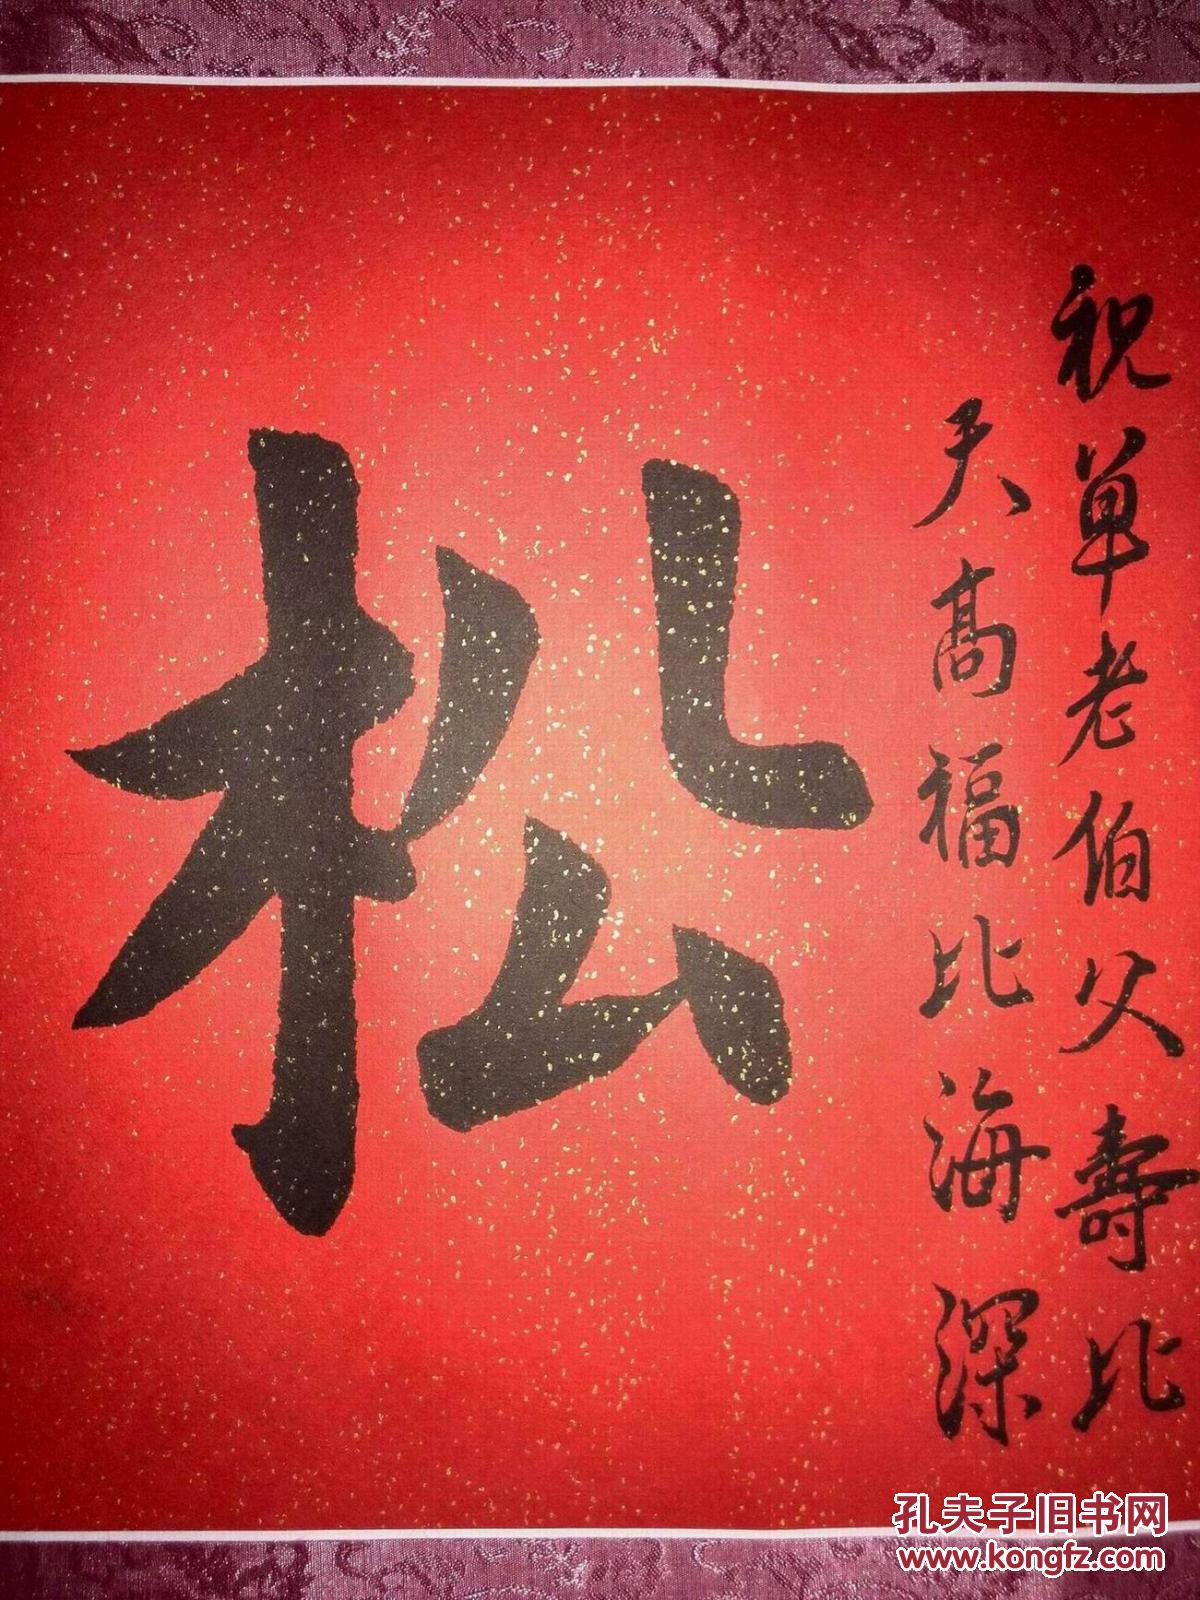 祝单老伯父壽比
天髙福比海深
松
孔夫子旧书网
www.kongfz.com